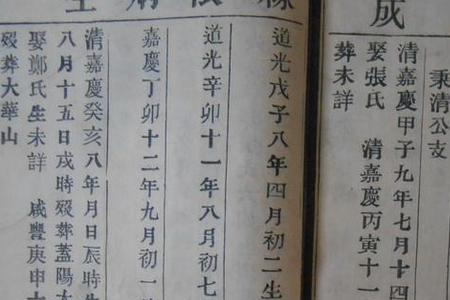 成
秉清公支
清嘉慶甲子九年七月十四
娶張氏　清嘉慶丙寅十一
葬未詳
道光戊子八年四月初二生
道光辛卯十一年八月初七
嘉慶丁卯十二年九月初一
清嘉慶癸亥八年月日辰時生
八月十五日戌時歿葬蓋陽
娶鄭氏生未詳　咸豐庚申十
歿葬大華山